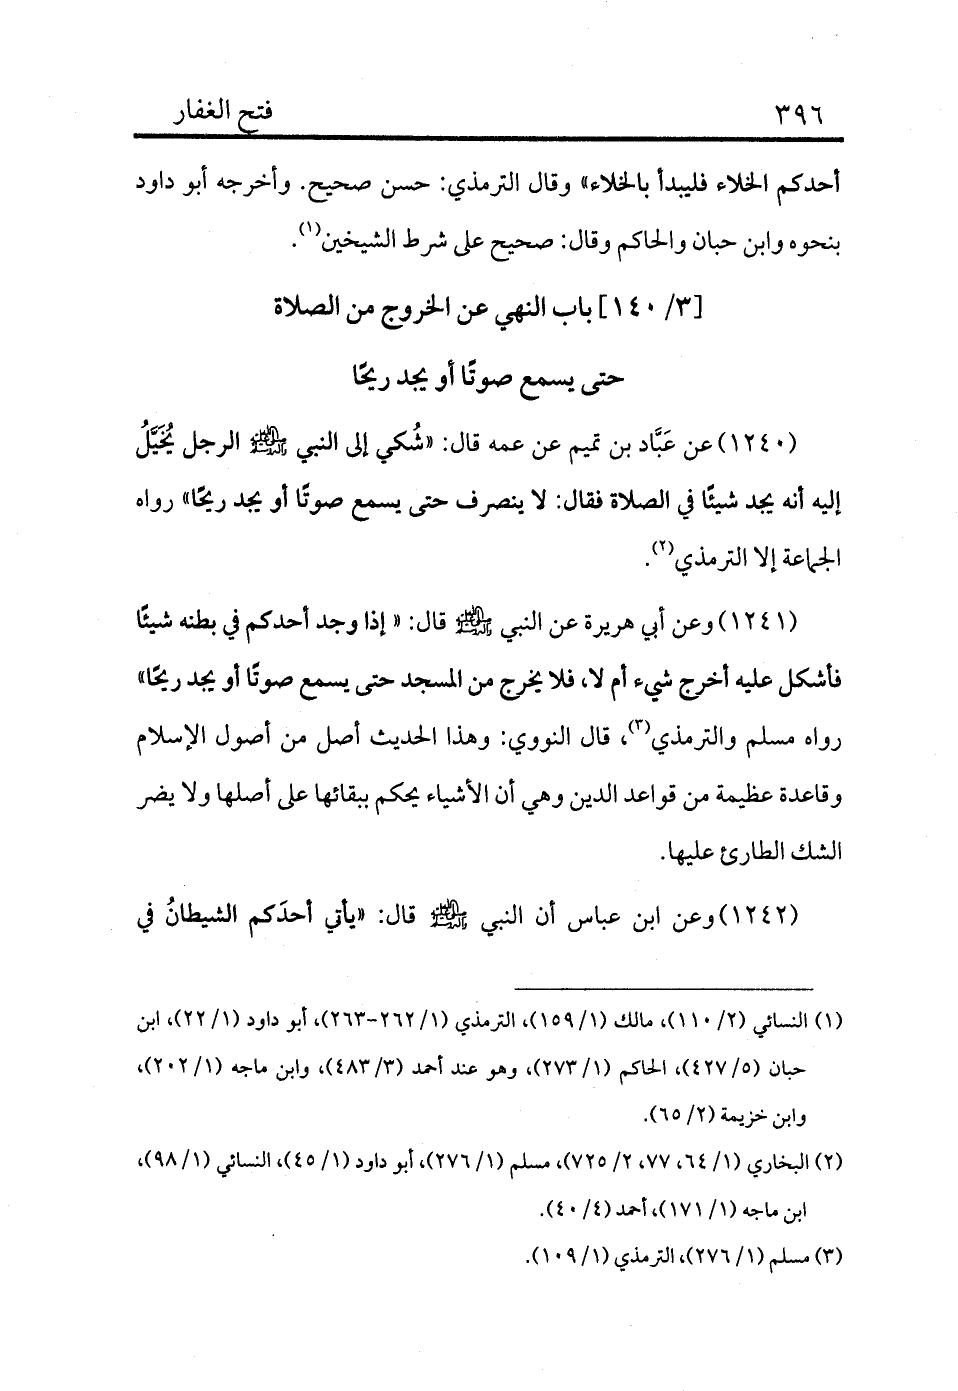 ٣٩٦ فتح الغفار
أحدكم الخلاء فليبدأ بالخلاء» وقال الترمذي: حسن صحيح. وأخرجه أبو داود
بنحوه وابن حبان والحاكم وقال: صحيح على شرط الشيخين(١).
[٣/ ١٤٠] باب النهي عن الخروج من الصلاة
حتى يسمع صوتًا أو يجد ريحًا
(١٢٤٠) عن عَبَّاد بن تميم عن عمه قال: «شُكي إلى النبي ﷺ الرجل يُخَيَّلُ
إليه أنه يجد شيئًا في الصلاة فقال: لا ينصرف حتى يسمع صوتًا أو يجد ريحًا» رواه
الجماعة إلا الترمذي(٢).
(١٢٤١) وعن أبي هريرة عن النبي ﷺ قال: « إذا وجد أحدكم في بطنه شيئًا
فأشكل عليه أخرج شيء أم لا، فلا يخرج من المسجد حتى يسمع صوتًا أو يجد ريحًا»
رواه مسلم والترمذي(٣)، قال النووي: وهذا الحديث أصل من أصول الإسلام
وقاعدة عظيمة من قواعد الدين وهي أن الأشياء يحكم ببقائها على أصلها ولا يضر
الشك الطارئ عليها.
(١٢٤٢) وعن ابن عباس أن النبي ﷺ قال: «يأتي أحدَكم الشيطانُ في
(١) النسائي (٢/ ١١٠)، مالك (١/ ١٥٩)، الترمذي (١/ ٢٦٢-٢٦٣)، أبو داود (١/ ٢٢)، ابن
حبان (٥/ ٤٢٧)، الحاكم (١/ ٢٧٣)، وهو عند أحمد (٣/ ٤٨٣)، وابن ماجه (١/ ٢٠٢)،
وابن خزيمة (٢/ ٦٥).
(٢) البخاري (١/ ٦٤، ٧٧، ٢/ ٧٢٥)، مسلم (١/ ٢٧٦)، أبو داود (١/ ٤٥)، النسائي (١/ ٩٨)،
ابن ماجه (١/ ١٧١)، أحمد (٤/ ٤٠).
(٣) مسلم (١/ ٢٧٦)، الترمذي (١/ ١٠٩).